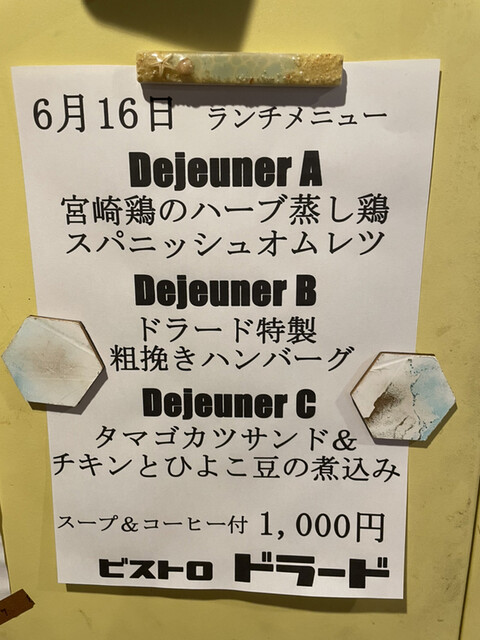 6月16日 ランチメニュー
Dejeuner A
宮崎鶏のハーブ蒸し鶏
スパニッシュオムレツ
Dejeuner B
ドラード特製
粗挽きハンバーグ
Dejeuner C
タマゴカツサンド&
チキンとひよこ豆の煮込み
スープ&コーヒー付 1,000円
ビストロ ドラード